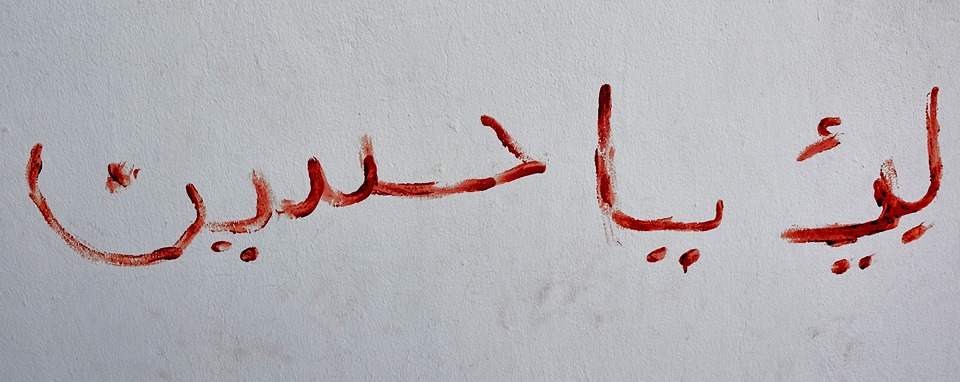 لبيك ياحسين